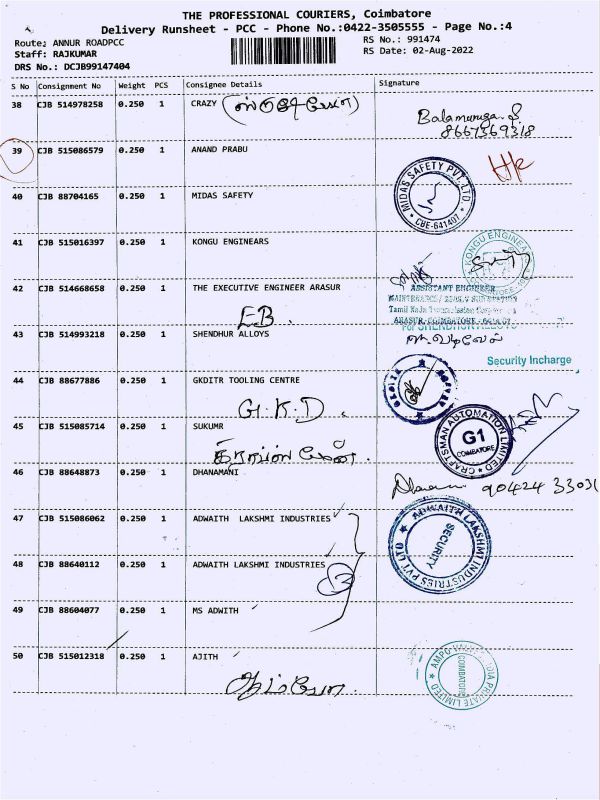 THE PROFESSIONAL COURIERS, Coimbatore
Delivery Runsheet - PCC - Phone No.:0422-3505555 - Page No.:4
Route: ANNUR ROADPCC
RS No.: 991474
Staff: RAJKUMAR
RS Date: 02-Aug-2022
DRS No.: DCJB99147404
S No Consignment No Weight PCS Consignee Details Signature
38 CJB 514978258 0.250 1 CRAZY
Balamurugan. S
8667369318
39 CJB 515086579 0.250 1 ANAND PRABU
40 CJB 88704165 0.250 1 MIDAS SAFETY
MIDAS SAFETY PVT LTD. CBE-641407
41 CJB 515016397 0.250 1 KONGU ENGINEARS
KONGU ENGINEAR
42 CJB 514668658 0.250 1 THE EXECUTIVE ENGINEER ARASUR
EB.
ASSISTANT ENGINEER
43 CJB 514993218 0.250 1 SHENDHUR ALLOYS
Security Incharge
44 CJB 88677886 0.250 1 GKDITR TOOLING CENTRE
G.K.D.
45 CJB 515085714 0.250 1 SUKUMR
CRAFTSMAN AUTOMATION LIMITED G1 COIMBATORE
46 CJB 88648873 0.250 1 DHANAMANI
90424 33031
47 CJB 515086062 0.250 1 ADWAITH LAKSHMI INDUSTRIES
ADWAITH LAKSHMI INDUSTRIES PVT LTD SECURITY
48 CJB 88640112 0.250 1 ADWAITH LAKSHMI INDUSTRIES
49 CJB 88604077 0.250 1 MS ADWITH
50 CJB 515012318 0.250 1 AJITH
PRIVATE LIMITED COIMBATORE